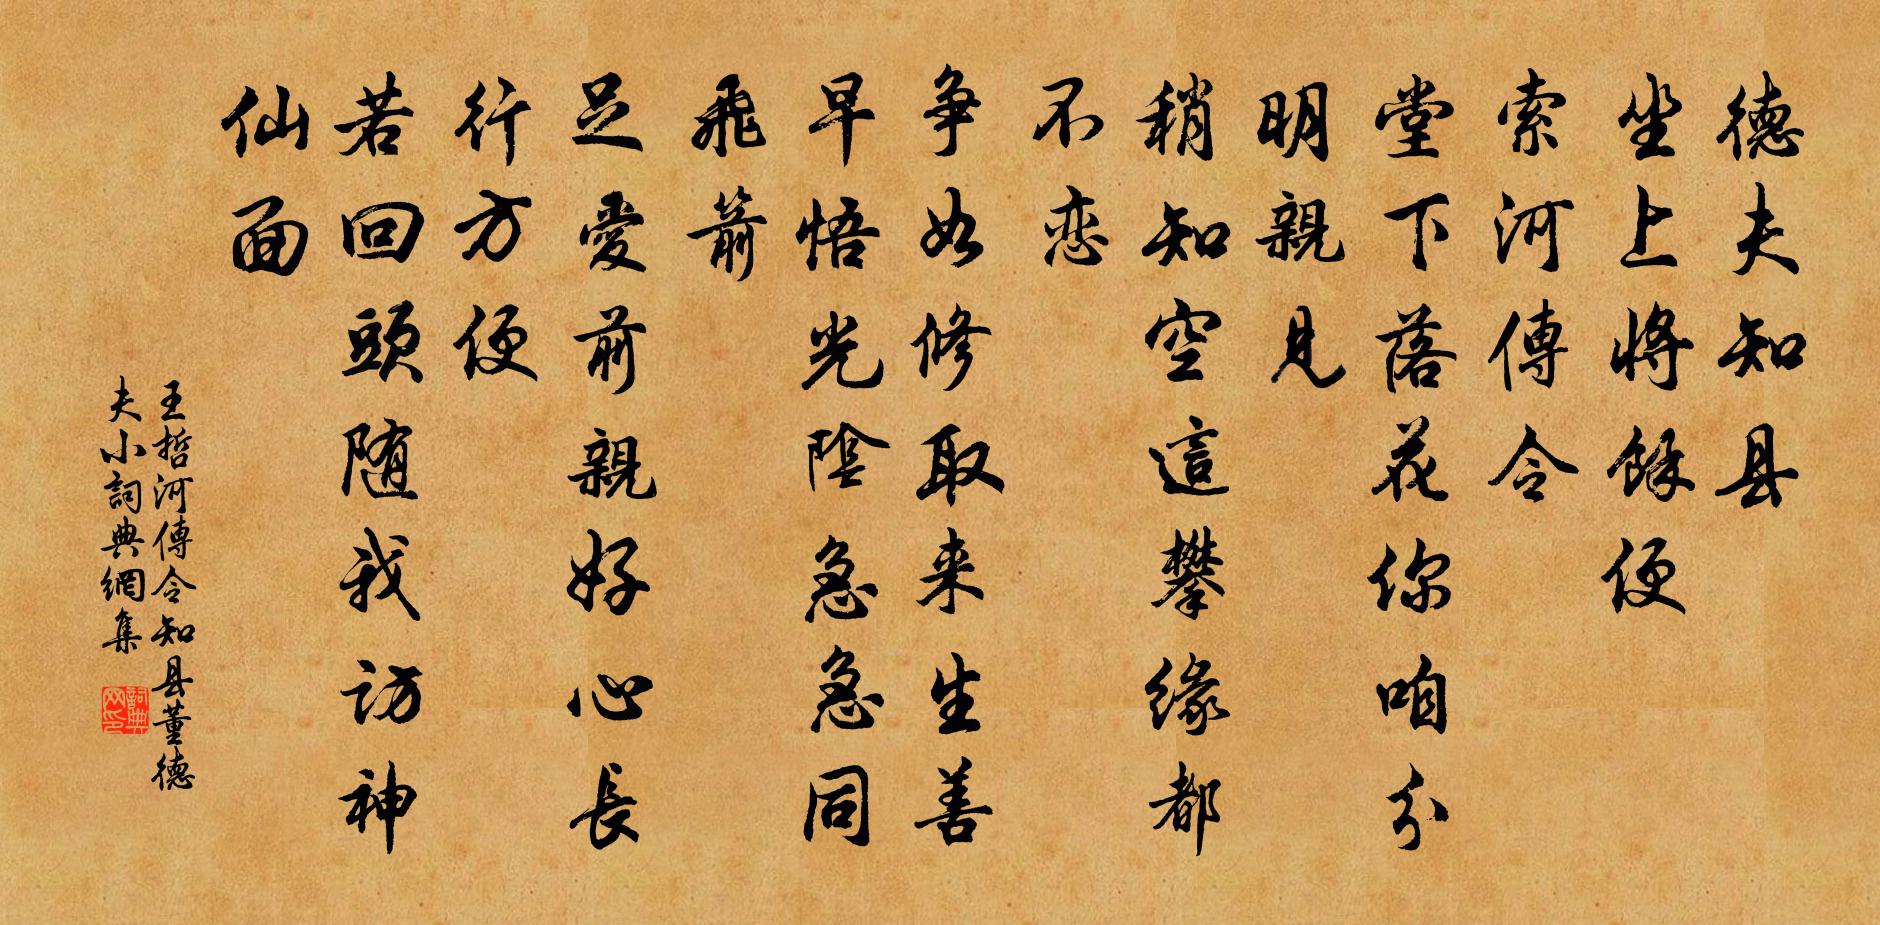 德夫知县
坐上将餘便
索河傳令
堂下落花你咱分
明親見
稍知空這攀缘都
不恋
争如修取来生善
早悟光陰急急同
飛箭
足愛前親好心長
行方便
若回頭随我访神
仙面
王哲河傳令知县董德
夫小詞典網集
詞典
网印